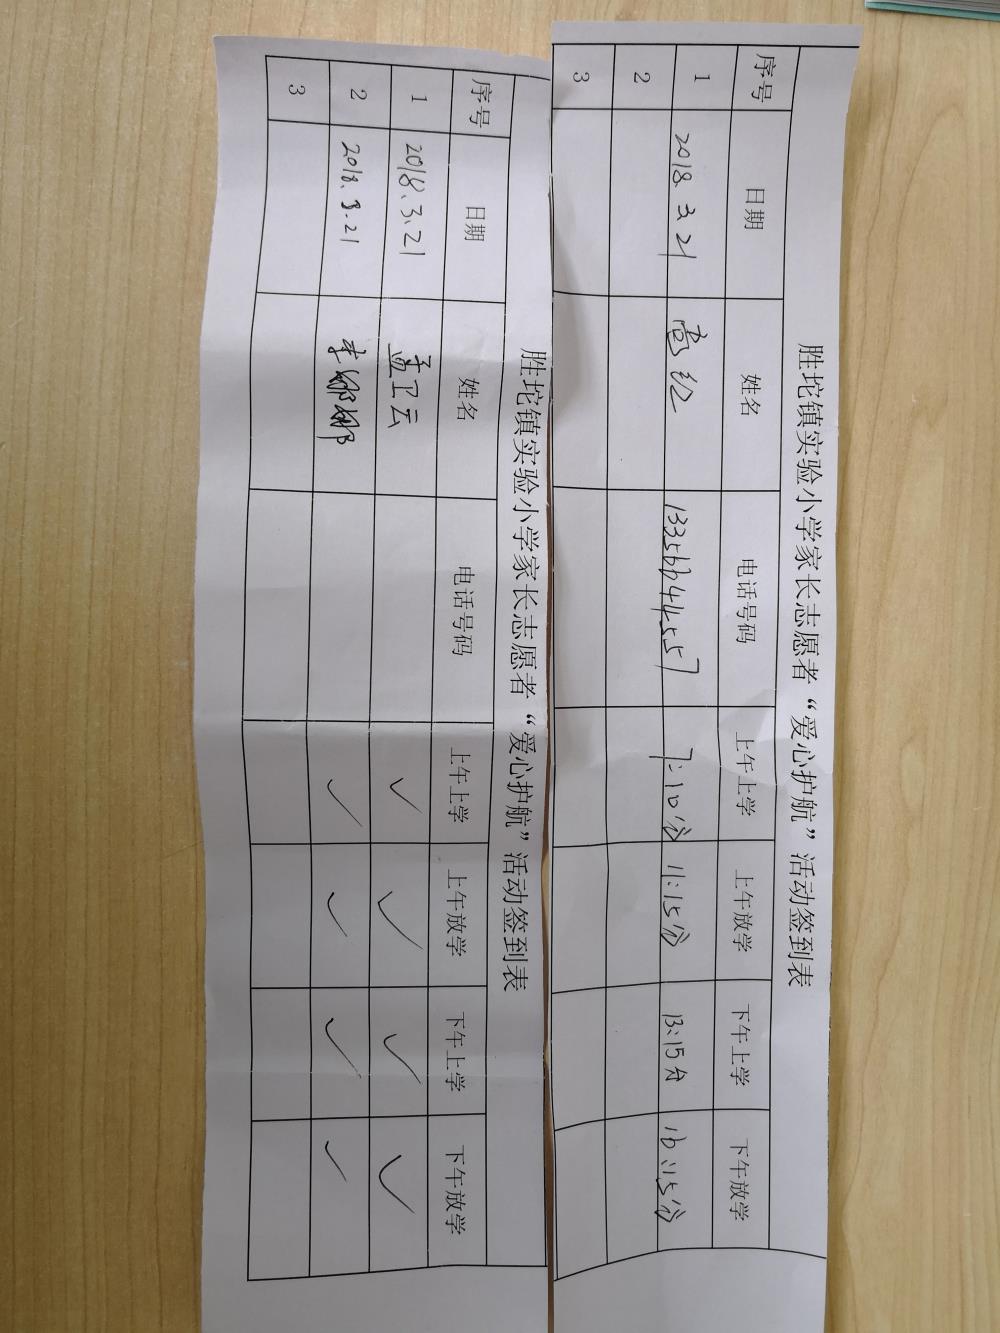 胜坨镇实验小学家长志愿者“爱心护航”活动签到表
序号 日期 姓名 电话号码 上午上学 上午放学 下午上学 下午放学
1 2018.3.21 高红 13356644557 7:10分 11:15分 13:15分 16:15分
2
3
胜坨镇实验小学家长志愿者“爱心护航”活动签到表
序号 日期 姓名 电话号码 上午上学 上午放学 下午上学 下午放学
1 2018.3.21 孟卫云 ✓ ✓ ✓ ✓
2 2018.3.21 李娜娜 ✓ ✓ ✓ ✓
3